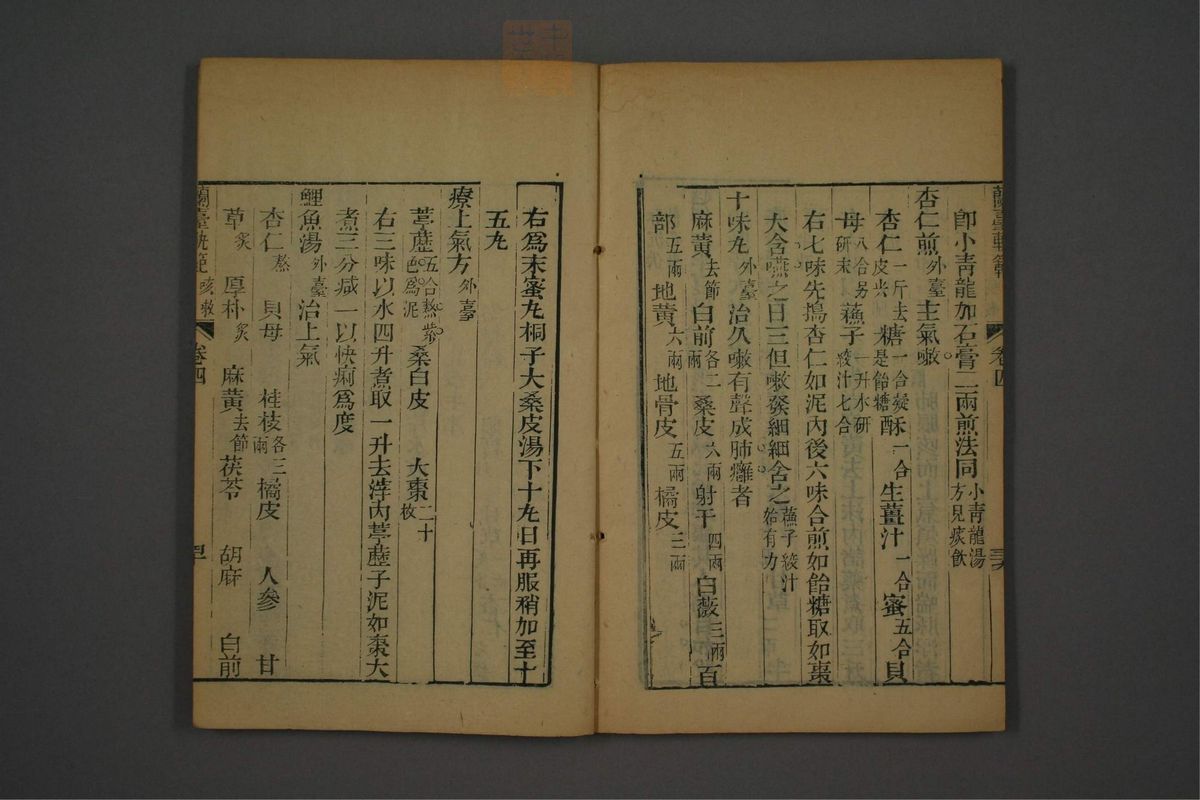 蘭臺軌範 卷四
卽小青龍加石膏二兩煎法同小青龍湯方見痰飲
杏仁煎外臺主氣嗽
杏仁一斤去皮尖糖一合凝是飴糖酥一合生薑汁一合蜜五合貝
母八合另研末蘓子一升水研絞汁七合
右七味先搗杏仁如泥內後六味合煎如飴糖取如棗
大含嚥之日三但嗽發細細含之蘓子絞汁始有力
十味丸外臺治久嗽有聲成肺癰者
麻黃去節白前各二兩桑皮六兩射干四兩白薇三兩百
部五兩地黃六兩地骨皮五兩橘皮三兩
右爲末蜜丸桐子大桑皮湯下十丸日再服稍加至十
五丸
療上氣方外臺
葶藶五合熬紫色爲泥桑白皮大棗二十枚
右三味以水四升煮取一升去滓內葶藶子泥如棗大
煮三分减一以快痢爲度
鯉魚湯外臺治上氣
杏仁熬貝母桂枝各三兩橘皮人參甘
草炙厚朴炙麻黃去節茯苓胡麻白前
蘭臺軌範 咳嗽 卷四